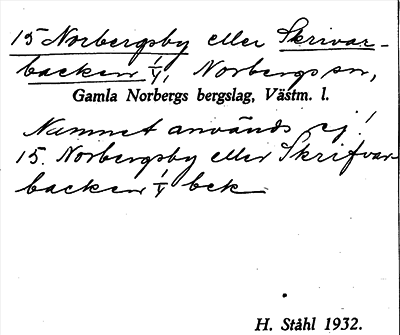 15 Norbergsby eller Skrivar-
backen 1/V, Norbergs sn,
Gamla Norbergs bergslag, Västm. l.
Namnet används ej!
15. Norbergsby eller Skrifvar-
backen 1/V bek
H. Ståhl 1932.